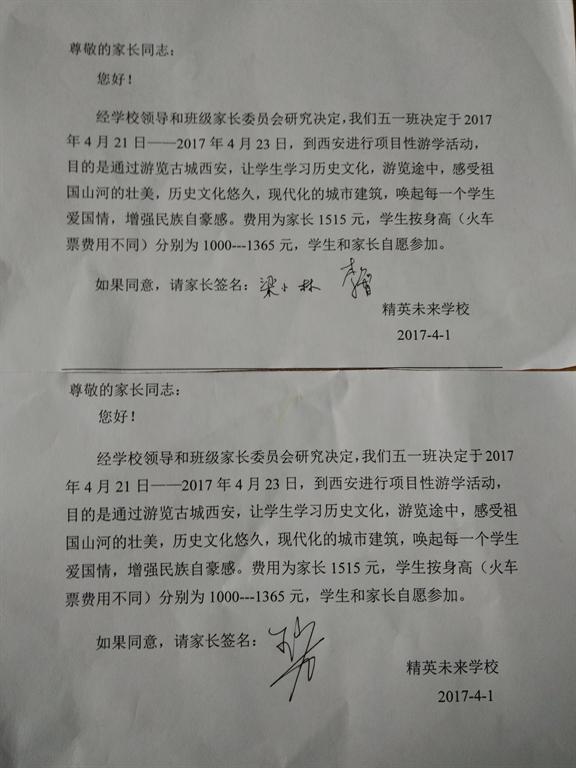 尊敬的家长同志：
您好！
经学校领导和班级家长委员会研究决定，我们五一班决定于2017
年4月21日——2017年4月23日，到西安进行项目性游学活动，
目的是通过游览古城西安，让学生学习历史文化，游览途中，感受祖
国山河的壮美，历史文化悠久，现代化的城市建筑，唤起每一个学生
爱国情，增强民族自豪感。费用为家长1515元，学生按身高（火车
票费用不同）分别为1000---1365元，学生和家长自愿参加。
如果同意，请家长签名：梁小林
精英未来学校
2017-4-1
尊敬的家长同志：
您好！
经学校领导和班级家长委员会研究决定，我们五一班决定于2017
年4月21日——2017年4月23日，到西安进行项目性游学活动，
目的是通过游览古城西安，让学生学习历史文化，游览途中，感受祖
国山河的壮美，历史文化悠久，现代化的城市建筑，唤起每一个学生
爱国情，增强民族自豪感。费用为家长1515元，学生按身高（火车
票费用不同）分别为1000---1365元，学生和家长自愿参加。
如果同意，请家长签名：
精英未来学校
2017-4-1